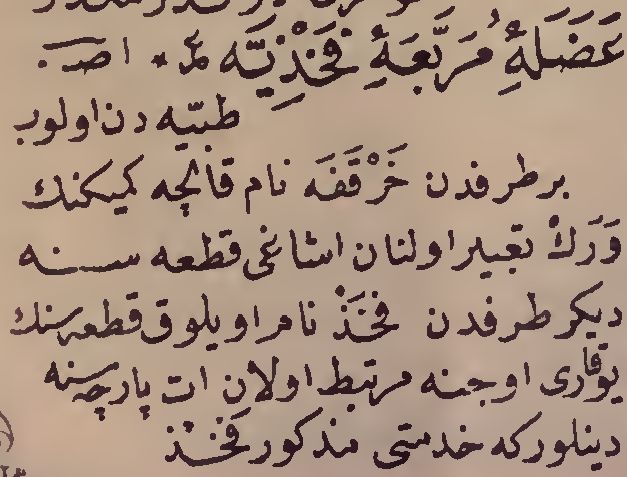 عَضَلَهٔ مُرَبَّعَهٔ فَخَذِيَّه * اصـ.
طبيّه دن اولوب
بر طرفدن خَرْقَفَه نام قالچه كميكنك
وَرَكْ تعبير اولنان اشاغى قطعه سـنه
ديكر طرفدن فَخَذْ نام اويلوق قطعه سنك
يوقارى اوجنه مرتبط اولان ات پارچه سنه
دينلوركه خدمتى مذكور فَخَذ